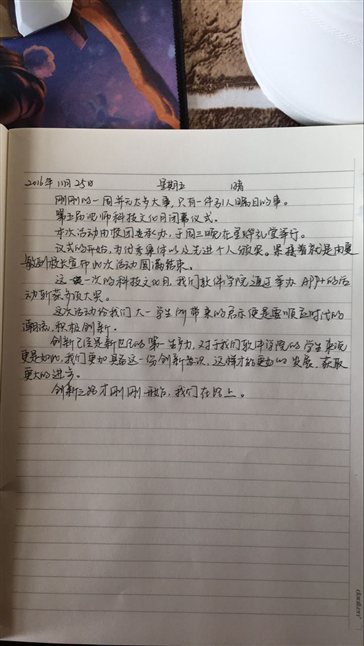 2016年11月25日 星期五 晴
刚刚的一周并无太多大事,只有一件引人瞩目的事。
第五届 师科技文化月闭幕仪式。
本次活动由校团委承办,于周三晚在星 礼堂举行。
仪式的开始,为优秀集体以及先进个人颁奖。紧接着就是由
校长宣布此次活动圆满结束。
这一次的科技文化月,我们软件学院通过举办APP 的活
动斩获多项大奖。
这次活动给我们大一学生所带来的启示便是要顺应时代的
潮流,积极创新。
创新已经是新世纪的第一生产力,对于我们软件学院的学生来说
更是如此,我们更加具备这一份创新意识,这样才能更好的发展,获取
更大的进步。
创新之路才刚刚开始,我们在路上。